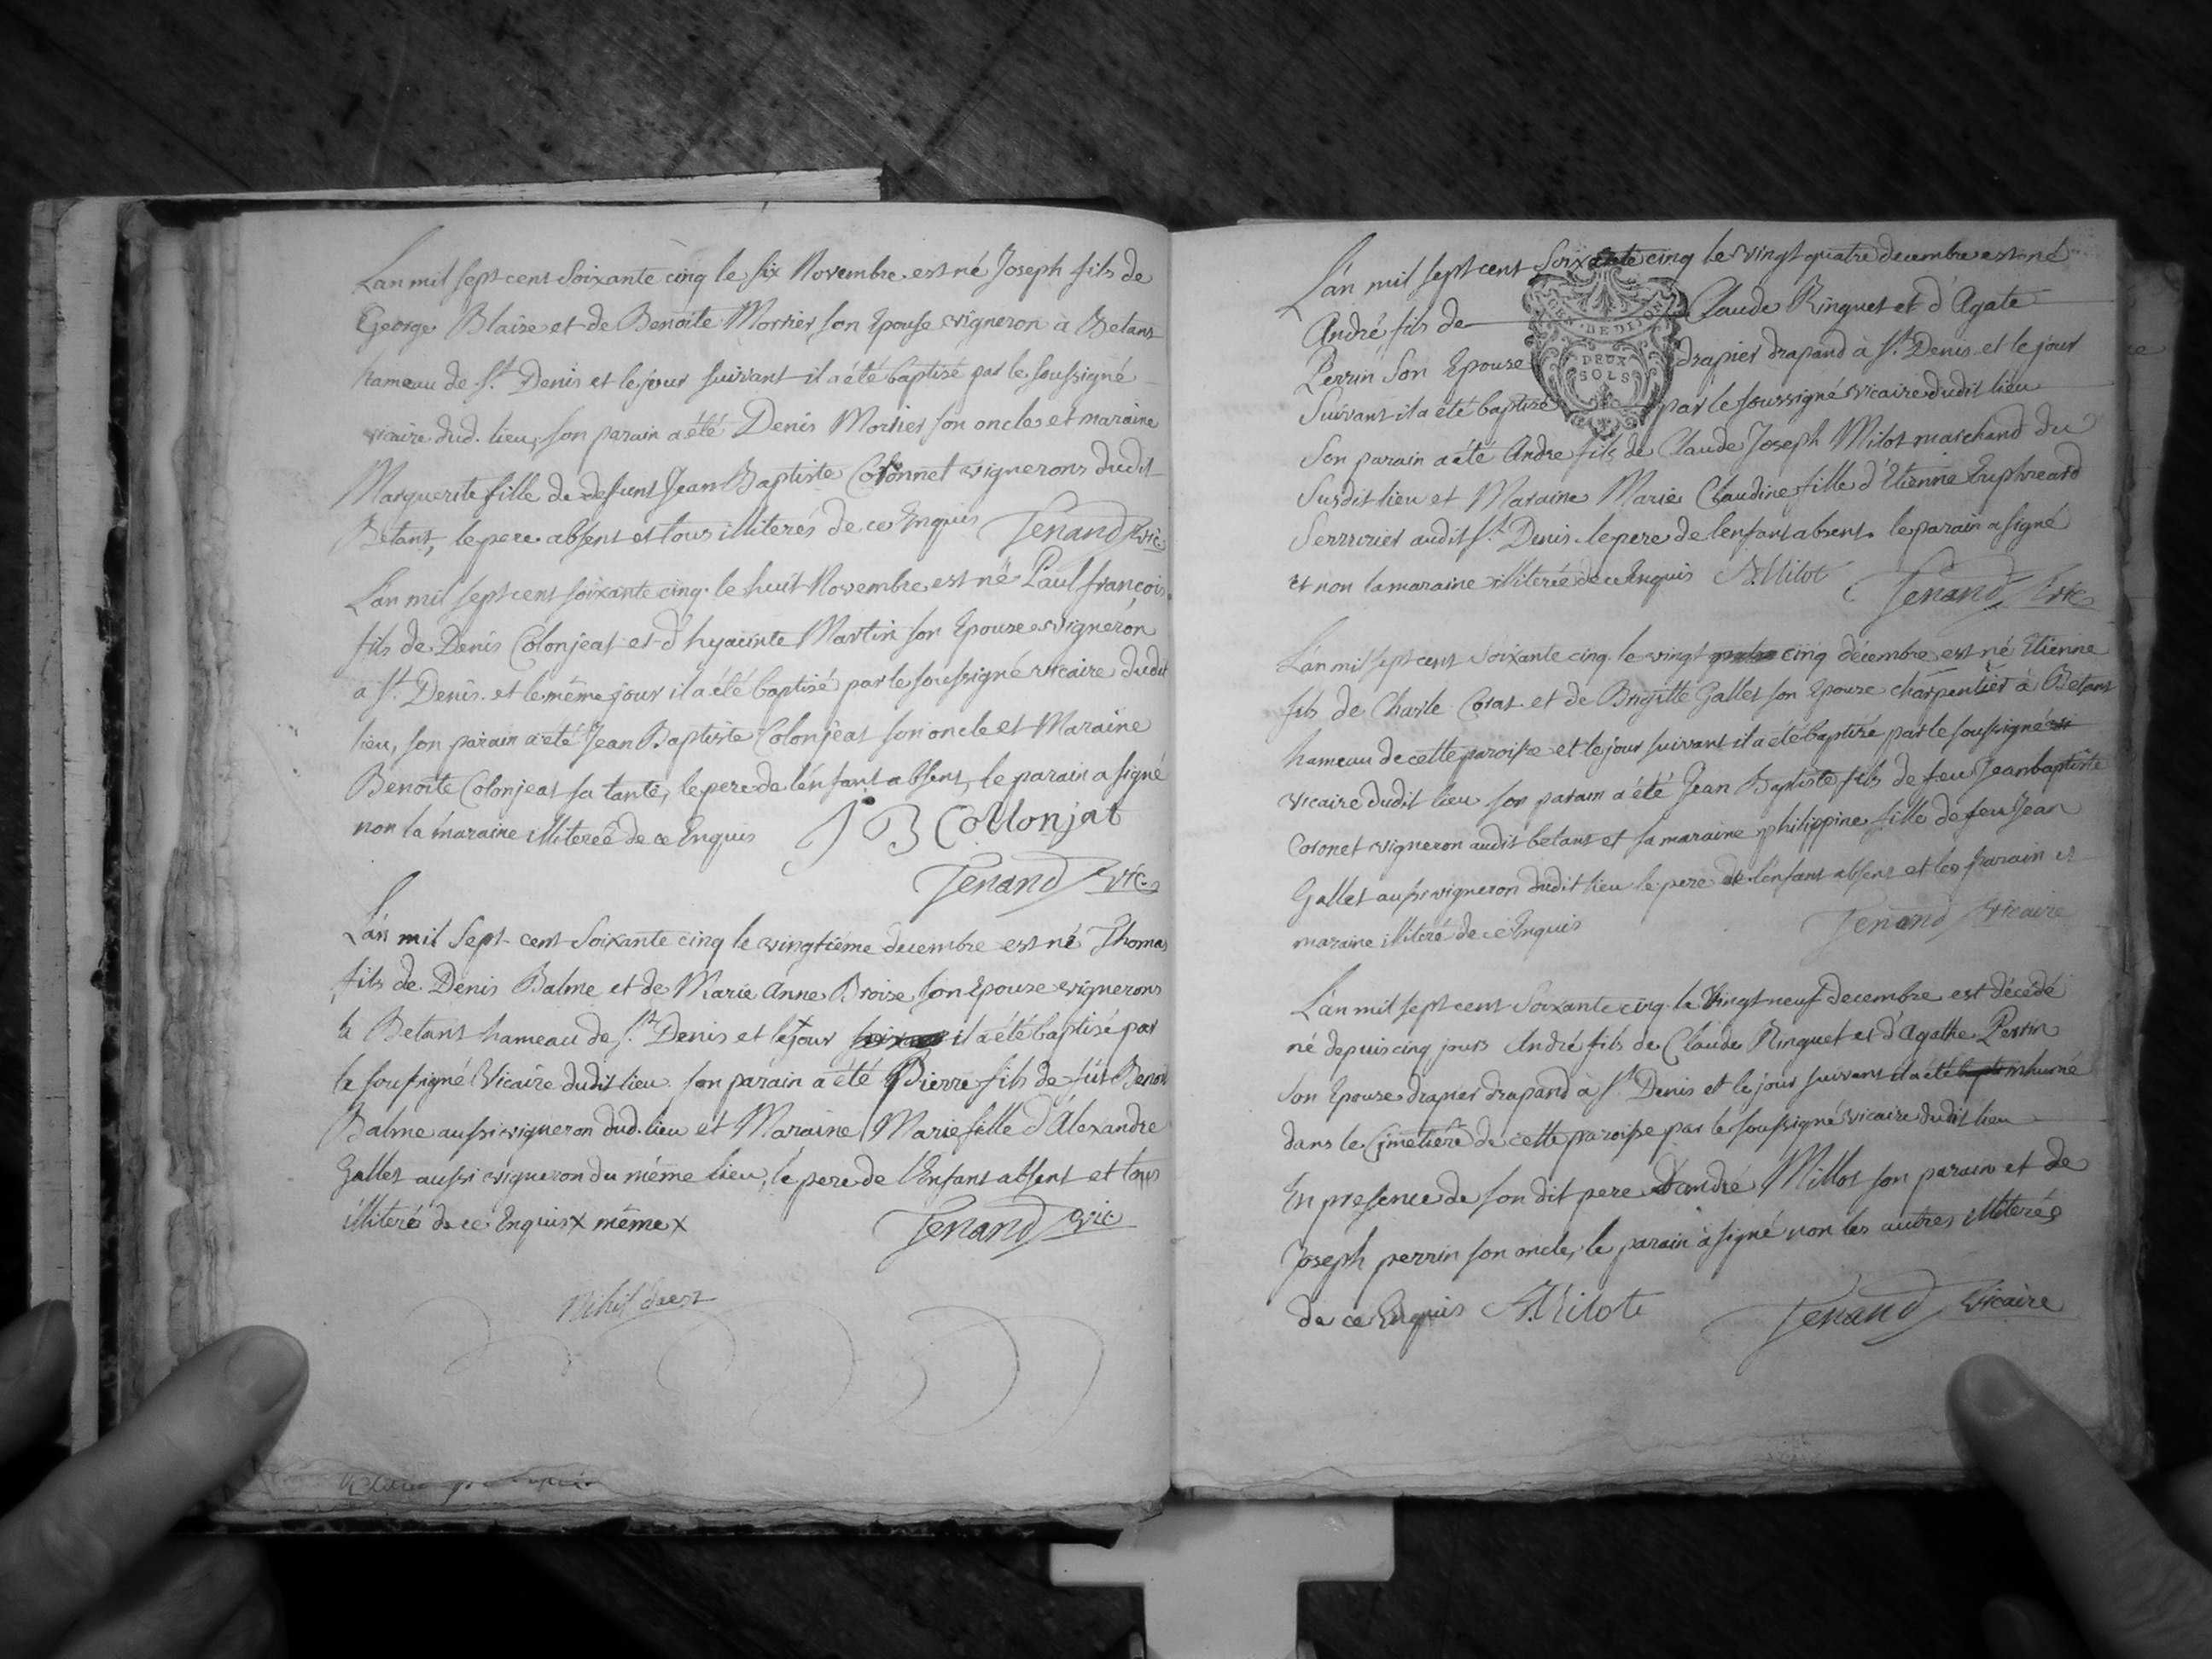 L'an mil sept cent soixante cinq le six Novembre est né Joseph fils de
George Blaise et de Benoite Morrier son Epouse vigneron à Betans
hameau de St. Denis et le jour suivant il a été baptisé par le soussigné
vicaire dud. lieu, son parain a été Denis Morier son oncle et maraine
Marguerite fille de defunt Jean Baptiste Coronnet vignerons dudit
Betant, le pere absent et tous illiterés de ce Enquis Tenand vic
L'an mil sept cent soixante cinq le huit Novembre est né Paul françois
fils de Denis Colonjeat et d'hyacinte Martin son Epouse vigneron
a St. Denis et le même jour il a été baptisé par le soussigné vicaire dudit
lieu, son parain a été Jean Baptiste Colonjeat son oncle et Maraine
Benoîte Colonjeat sa tante, le pere de l'enfant absent, le parain a signé
non la maraine illiterée de ce Enquis J B Collonjat
Tenand vic
L'an mil Sept cent Soixante cinq le vingtiéme decembre est né Thomas
fils de Denis Balme et de Marie Anne Broise son Epouse vignerons
à Betans hameau de St. Denis et le x jour il a été baptisé par
le soussigné Vicaire dudit lieu. son parain a été Pierre fils de fût Benoit
Balme aussi vigneron dud. lieu et Maraine Marie fille d'Alexandre
Gallet aussi vigneron du même lieu, le pere de l'Enfant absent et tous
illiterés de ce Enquis x même x Tenand vic
Nihil deest
L'an mil sept cent Soixante cinq le vingt quatre decembre est né
André fils de Claude Ringuet et d'Agate
GEN. DE DIJON
DEUX
SOLS
Perrin Son Epouse drapier drapand à St. Denis et le jour
Suivant il a été baptisé par le soussigné vicaire dudit lieu
Son parain a été Andre fils de Claude Joseph Milot marchand du
Susdit lieu et Maraine Marie Claudine fille d'Etienne
Serrurier audit St. Denis le pere de l'enfant absent. le parain a signé
et non la maraine illiterée de ce Enquis A. Milot Tenand vic
L'an mil sept cent Soixante cinq le vingt cinq décembre est né Etienne
fils de Charle Corat et de Brigitte Gallet son Epouse charpentier à Betans
hameau de cette paroisse et le jour suivant il a été baptisé par le soussigné
vicaire dudit lieu son parain a été Jean Baptiste fils de feu Jean baptiste
Coronet vigneron audit betans et sa maraine philippine fille de feu Jean
Gallet aussi vigneron dudit lieu le pere de l'enfant absent et les parain et
maraine illiteré de ce Enquis Tenand vicaire
L'an mil sept cent Soixante cinq le Vingt neuf decembre est décédé
né depuis cinq jours André fils de Claude Ringuet et d'Agathe Perrin
Son Epouse drapier drapand à St. Denis et le jour suivant il a été inhumé
dans le Cimetiere de cette paroisse par le soussigné vicaire dudit lieu
En presence de son dit pere d'andré Millot son parain et de
Joseph perrin son oncle, le parain a signé non les autres illiterés
de ce Enquis A. Milot Tenand vicaire